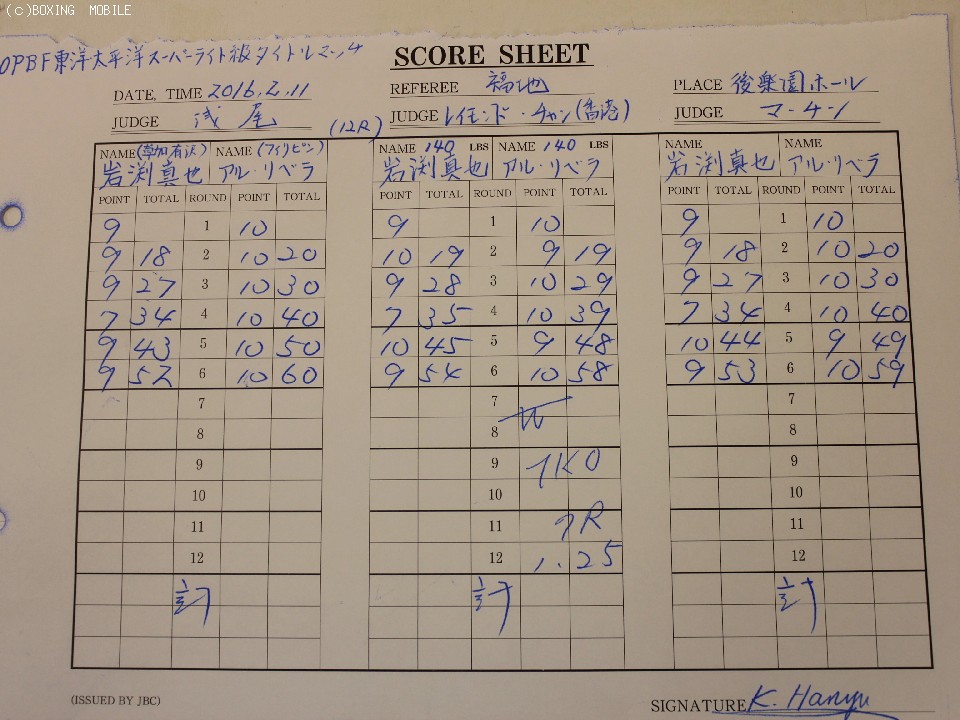 (c)BOXING MOBILE
OPBF東洋太平洋スーパーライト級タイトルマッチ
SCORE SHEET
DATE, TIME 2016.2.11 REFEREE 福地 PLACE 後楽園ホール
JUDGE 浅尾 (12R) JUDGE レイモンド・チャン(香港) JUDGE マーチン
NAME (草加有沢) NAME (フィリピン) NAME 140 LBS NAME 140 LBS NAME NAME
岩渕真也 アル・リベラ 岩渕真也 アル・リベラ 岩渕真也 アル・リベラ
POINT TOTAL ROUND POINT TOTAL POINT TOTAL ROUND POINT TOTAL POINT TOTAL ROUND POINT TOTAL
9 1 10 9 1 10 9 1 10
9 18 2 10 20 10 19 2 9 19 9 18 2 10 20
9 27 3 10 30 9 28 3 10 29 9 27 3 10 30
7 34 4 10 40 7 35 4 10 39 7 34 4 10 40
9 43 5 10 50 10 45 5 9 48 10 44 5 9 49
9 52 6 10 60 9 54 6 10 58 9 53 6 10 59
7 7 7
8 8 W 8
9 9 TKO 9
10 10 10
11 11 7R 11
12 12 1.25 12
計 計 計
(ISSUED BY JBC) SIGNATURE K. Hanyu